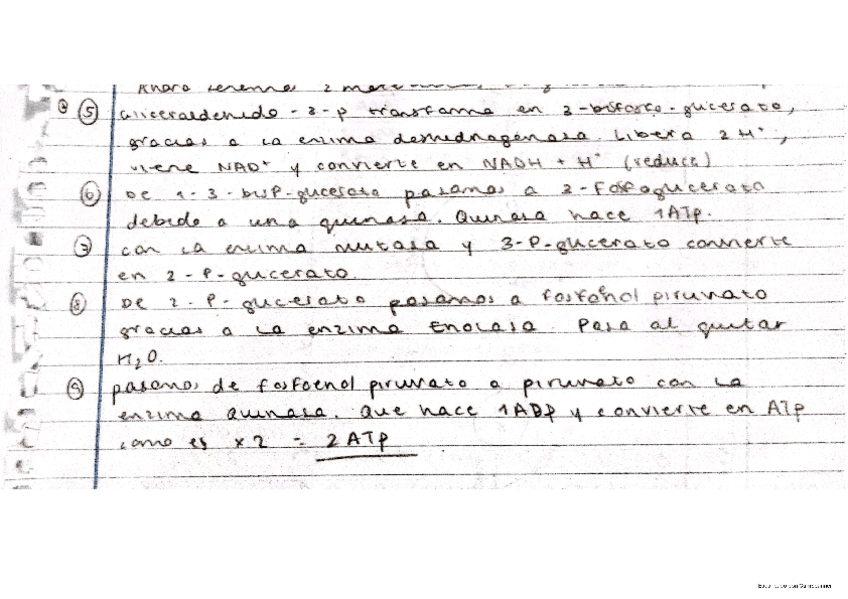 Ahora tenemos 2
5 Gliceraldehido - 3 - p transforma en 3 - bisfosfo - glicerato,
gracias a la enzima deshidrogenasa. Libera 2 H⁺,
viene NAD⁺ y convierte en NADH + H⁺ (reduce)
6 De 1 - 3 - bisP - glicerato pasamos a 3 - Fosfoglicerato
debido a una quinasa. Quinasa hace 1ATP.
7 con la enzima mutasa y 3-P-glicerato convierte
en 2 - P - glicerato.
8 De 2 - P - glicerato pasamos a fosfoenol piruvato
gracias a la enzima Enolasa. Pasa al quitar
H₂O.
9 pasamos de fosfoenol piruvato a piruvato con la
enzima Quinasa. Que hace 1ADP y convierte en ATP
como es x 2 = 2 ATP